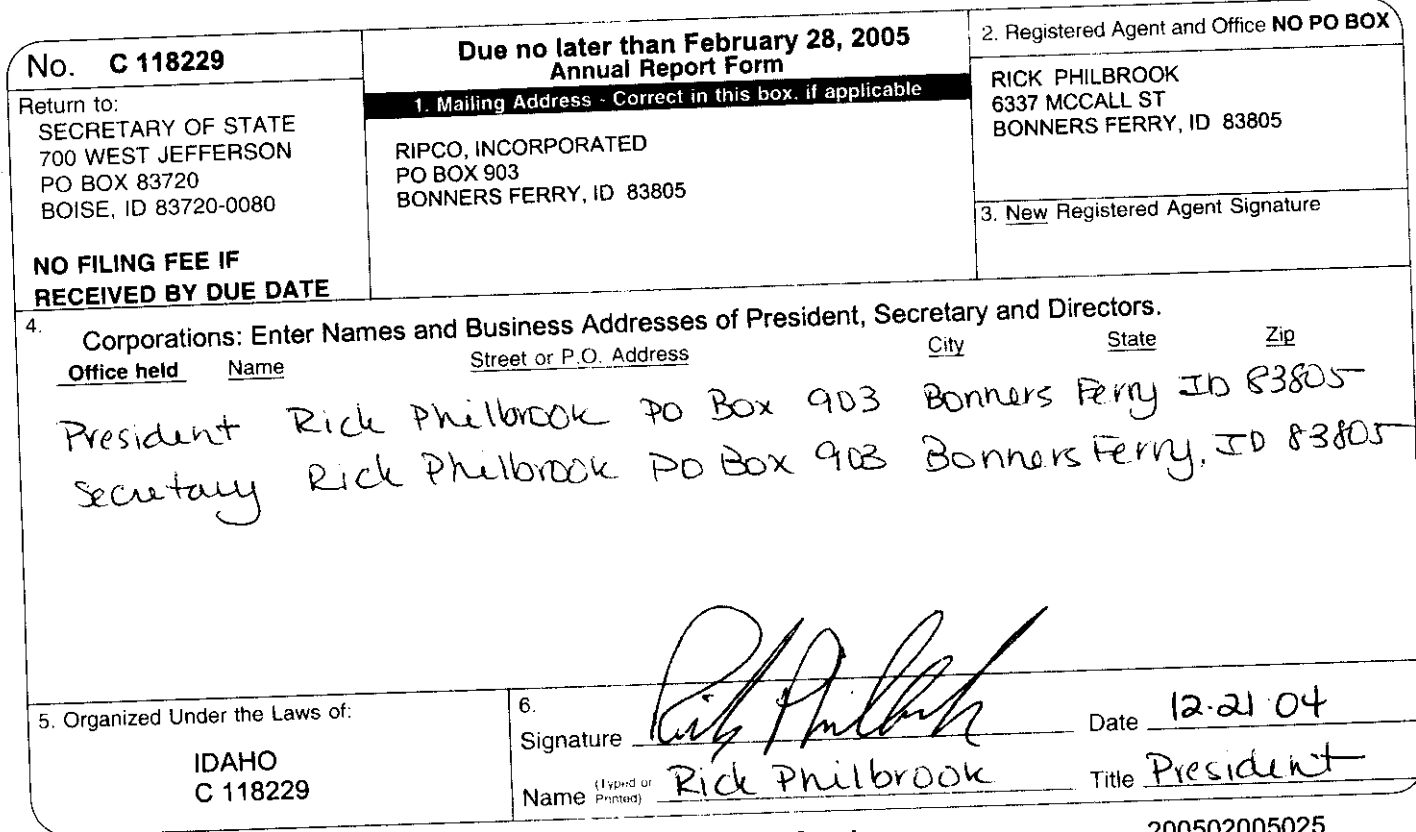 No. C 118229
Return to:
SECRETARY OF STATE
700 WEST JEFFERSON
PO BOX 83720
BOISE, ID 83720-0080
NO FILING FEE IF
RECEIVED BY DUE DATE
Due no later than February 28, 2005
Annual Report Form
1. Mailing Address - Correct in this box, if applicable
RIPCO, INCORPORATED
PO BOX 903
BONNERS FERRY, ID 83805
2. Registered Agent and Office NO PO BOX
RICK PHILBROOK
6337 MCCALL ST
BONNERS FERRY, ID 83805
3. New Registered Agent Signature
4. Corporations: Enter Names and Business Addresses of President, Secretary and Directors.
Office held Name Street or P.O. Address City State Zip
President Rick Philbrook PO Box 903 Bonners Ferry ID 83805
Secretary Rick Philbrook PO Box 903 Bonners Ferry, ID 83805
5. Organized Under the Laws of:
IDAHO
C 118229
6.
Signature Rick Philbrook Date 12.21.04
Name (Typed or Printed) Rick Philbrook Title President
200502005025